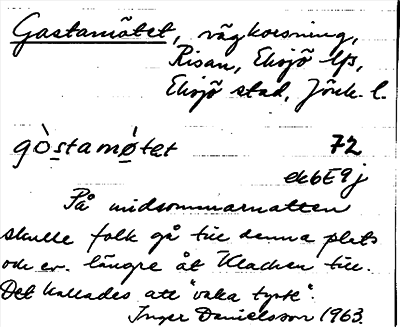 Gastamötet, vägkorsning,
Risan, Eksjö lfs,
Eksjö stad, Jönk. l.
gòstamǿtet 72
ek6E9j
På midsommarnatten
skulle folk gå till denna plats
och ev. längre åt Klacken till.
Det kallades att "vaka tyst".
Inger Danielsson 1963.